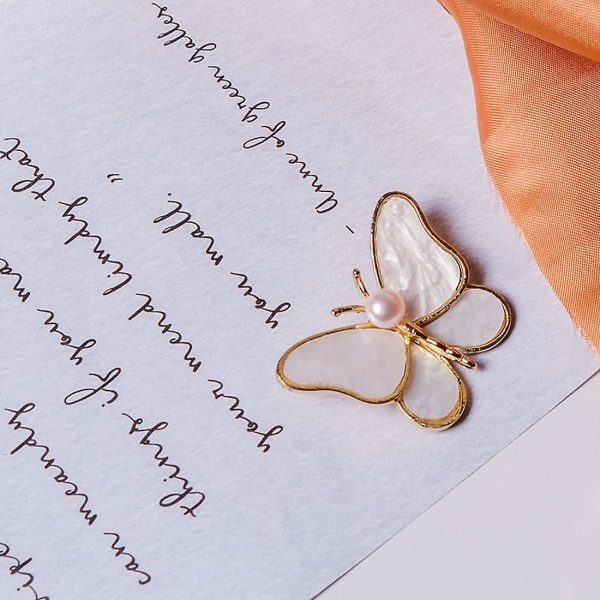 can meandy
things if you ma
your mend lindy that
you mall."
- Anne of green gales